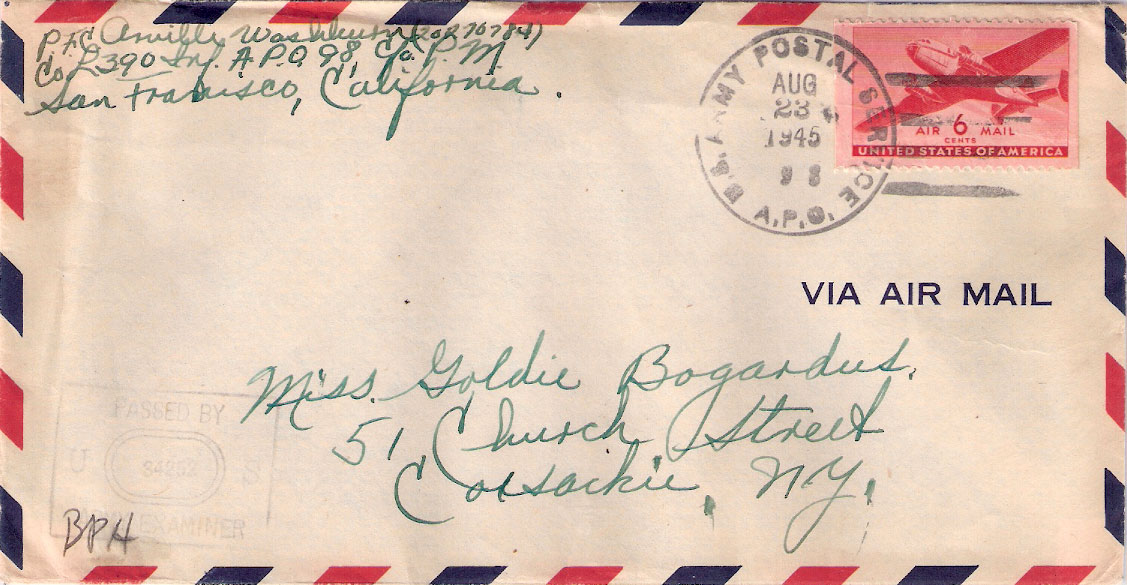 PFC Orville Washburn (20270784)
Co. L 390 Inf. A.P.O. 98, C/o. P.M.
San Francisco, California.
U.S. ARMY POSTAL SERVICE
A.P.O.
AUG
23
1945
AIR 6 MAIL
CENTS
UNITED STATES OF AMERICA
VIA AIR MAIL
Miss. Goldie Bogardus.
51 Church Street
Coxsackie, N.Y.
PASSED BY
U 34252 S
ARMY EXAMINER
BPH